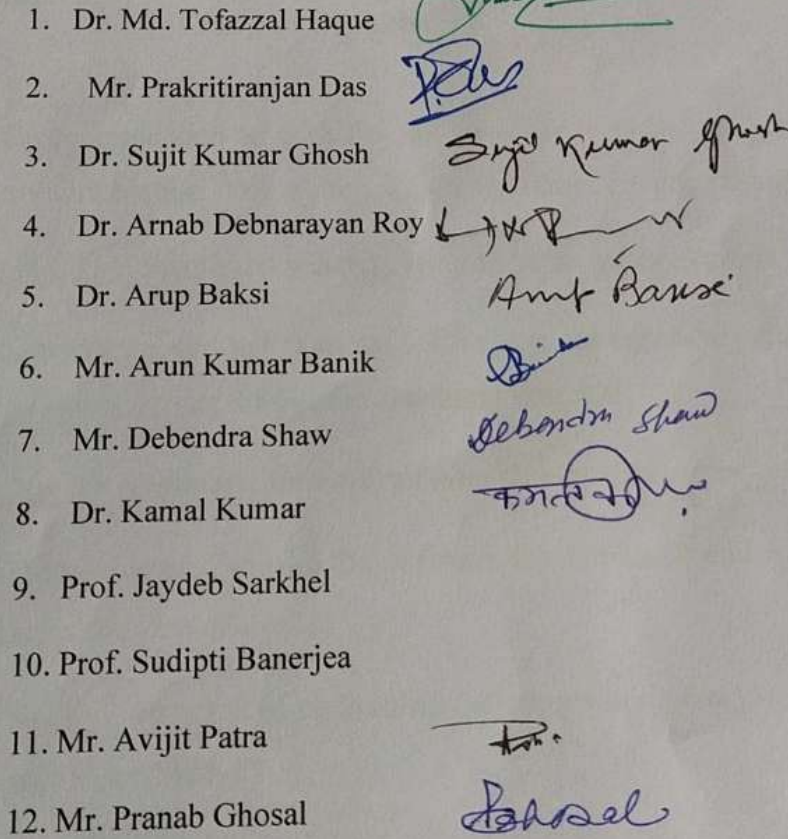 1. Dr. Md. Tofazzal Haque
2. Mr. Prakritiranjan Das P. Das
3. Dr. Sujit Kumar Ghosh Sujit Kumar Ghosh
4. Dr. Arnab Debnarayan Roy
5. Dr. Arup Baksi Arup Baksi
6. Mr. Arun Kumar Banik
7. Mr. Debendra Shaw Debendra Shaw
8. Dr. Kamal Kumar कमल
9. Prof. Jaydeb Sarkhel
10. Prof. Sudipti Banerjea
11. Mr. Avijit Patra
12. Mr. Pranab Ghosal PGhosal